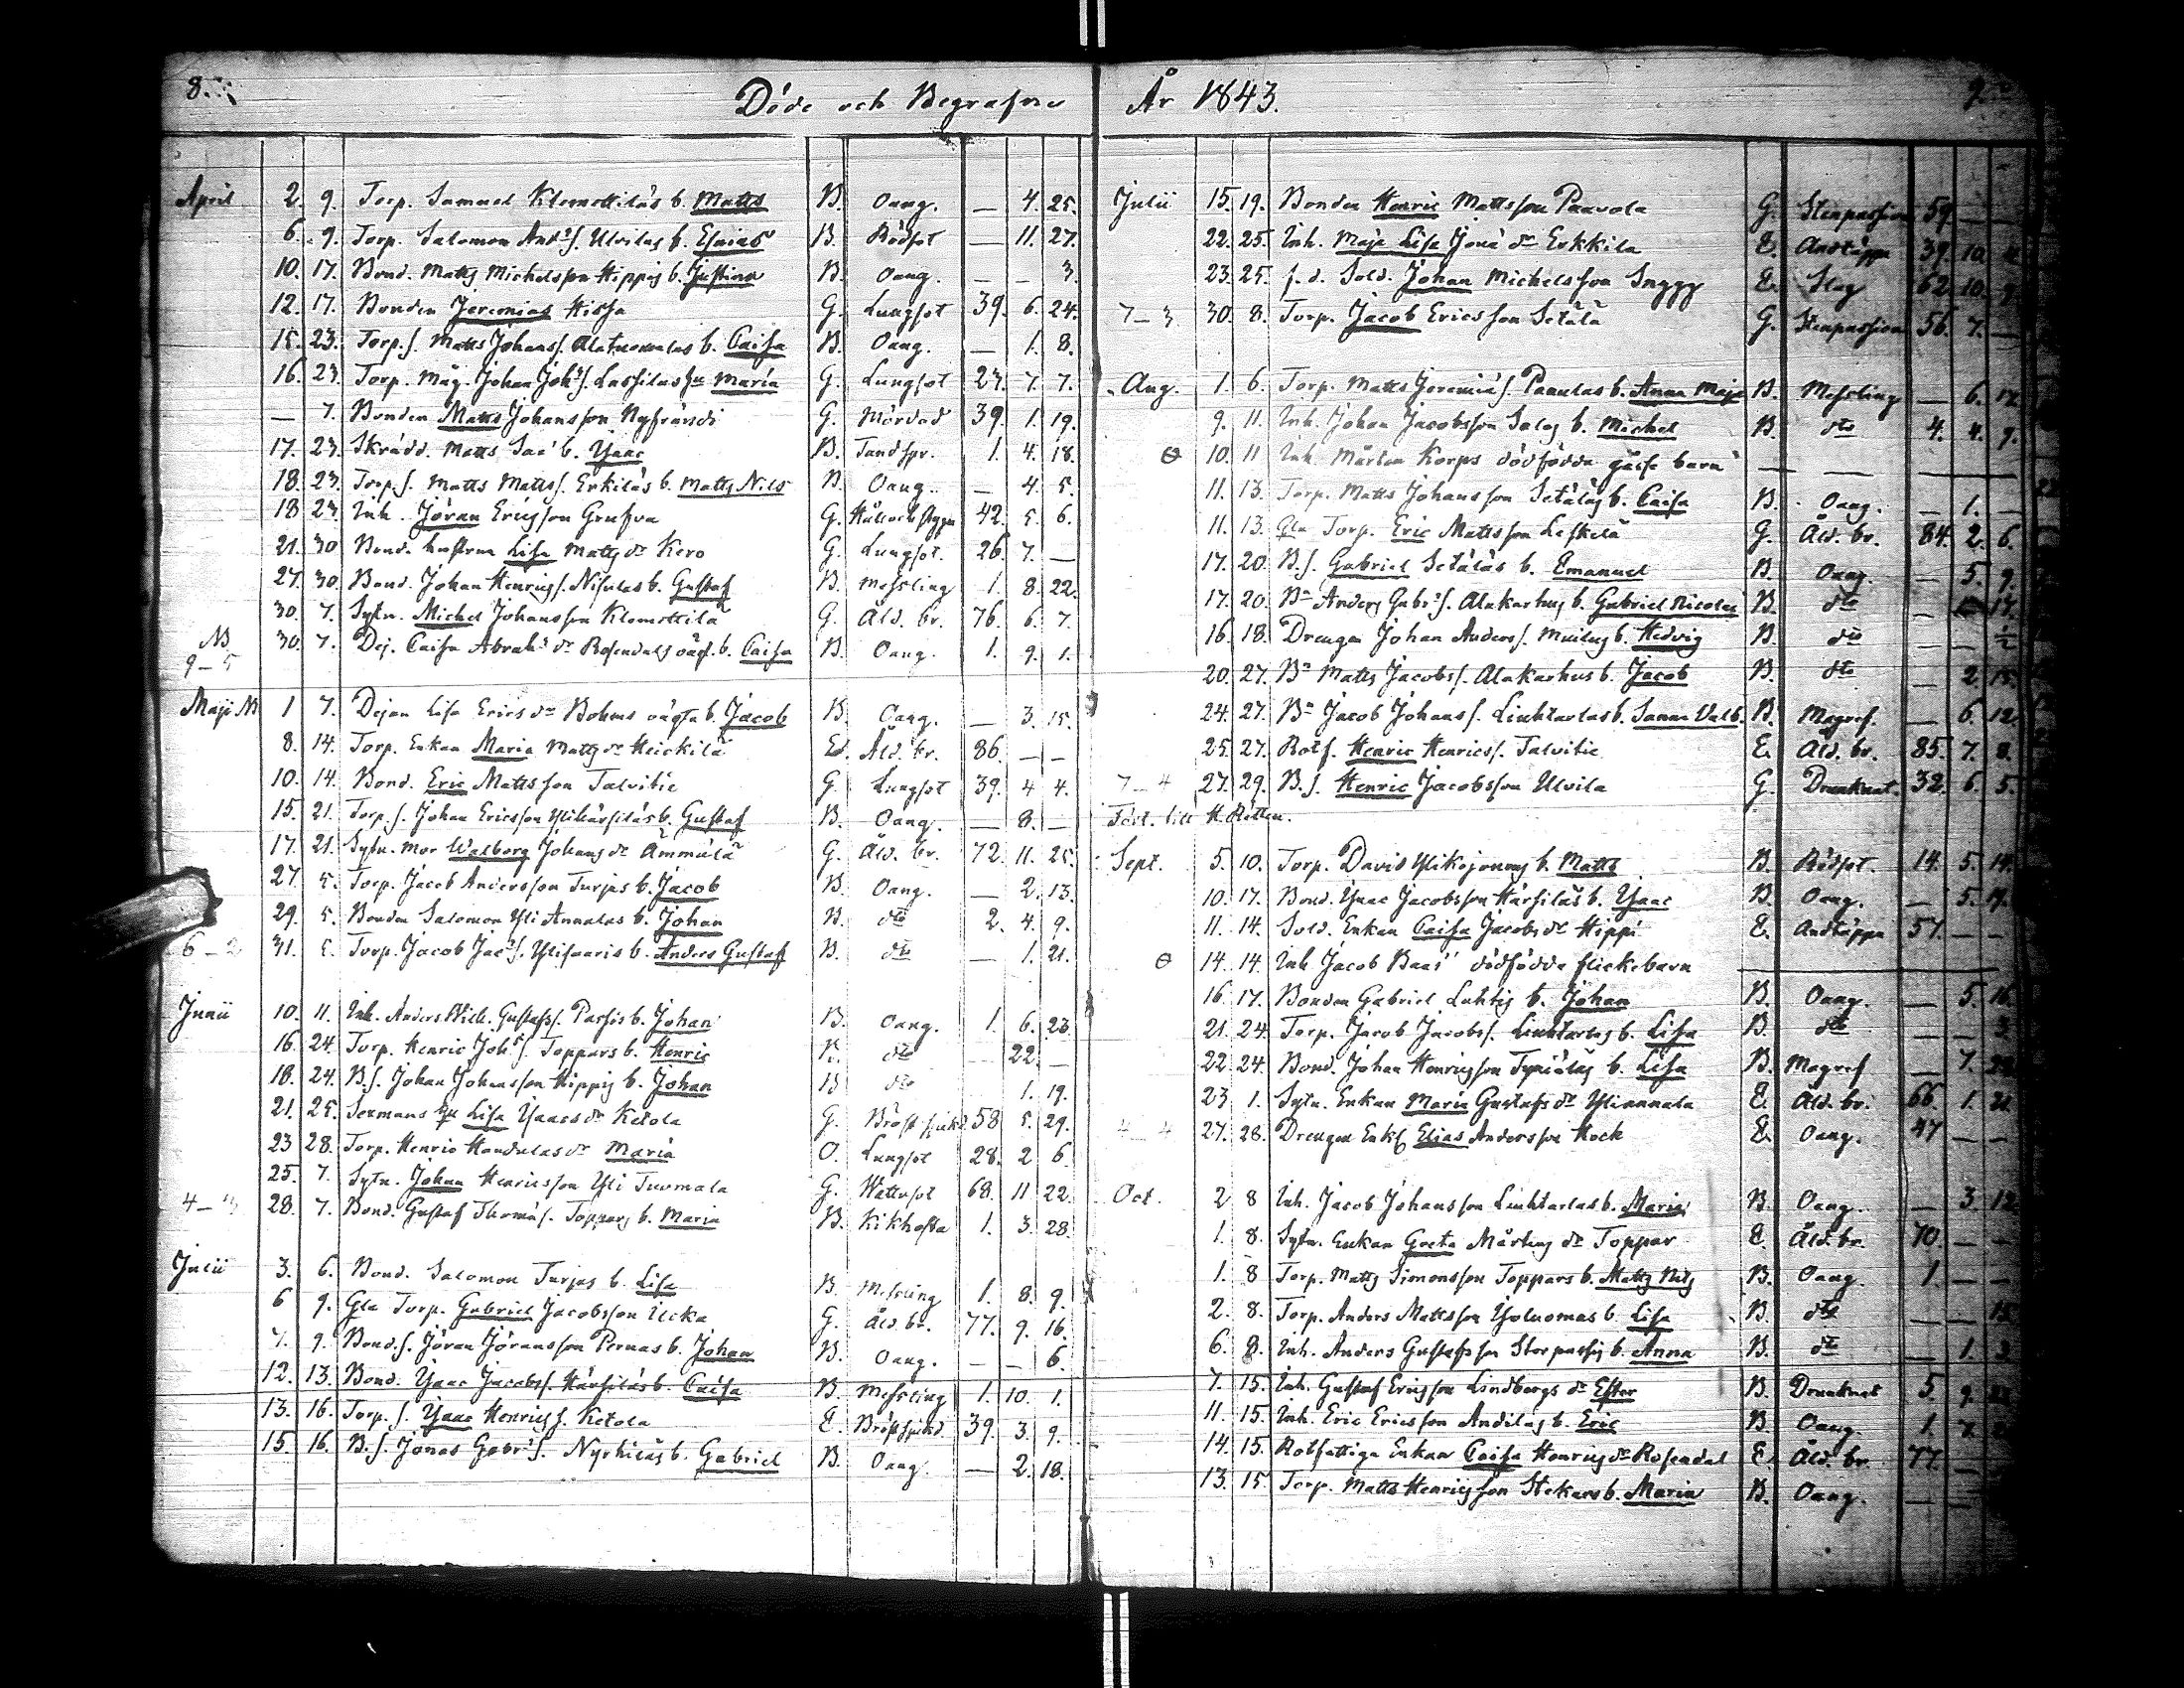 8.
Döde och Begrafne
April 2. 9. Torp. Samuel Klemettiläs b. Matts B. Oang. — 4. 25.
6. 9. Torp. Salomon And:s s. Ulvilas b. Esaias B. Rödsot — 11. 27.
10. 17. Bond. Matts Michelsson Hippis b. Justina B. Oang. — — 3.
12. 17. Bonden Jeremias Hissa G. Lungsot 39. 6. 24.
15. 23. Torp. s. Matts Johans s. Alatuomalas b. Caisa B. Oang. — 1. 8.
16. 23. Torp. Måg. Johan Joh:s s. Lassilas hu Maria G. Lungsot 27. 7. 7.
— 7. Bonden Matts Johansson Nyfrändi G. Mördad 39. 1. 19.
17. 23. Skrädd. Matts Saä b. Ysaac B. Tandspr. 1. 4. 18.
18. 23. Torp. s. Matts Matts s. Erkiläs b. Matts Nils B. Oang. — 4. 5.
18 23. Inh. Jöran Ericsson Grufva G. Håll och stygn 42. 5. 6.
21. 30 Bond. hustrun Lisa Matts dr Kero G. Lungsot. 26 7. —
27. 30. Bond. Johan Henrics s. Nisulas b. Gustaf B. Messling 1. 8. 22.
30. 7. Sytn. Michel Johansson Klemettilä G. Åld. br. 76. 6. 7.
NB 9–5 30. 7. Dej. Caisa Abrah:s dr Rosendals oägt. b. Caisa B. Oang. 1. 9. 1.
Maji NB 1 7. Dejan Lisa Erics dr Bohms oägta b. Jacob B. Oang. — 3. 15.
8. 14. Torp. Enkan Maria Matts dr Heickilä E. Åld. br. 86. — —
10. 14. Bond. Eric Mattsson Talvitie G. Lungsot 39. 4 4.
15. 21. Torp. s. Johan Ericsson Ylihärsiläs b. Gustaf B. Oang. — 8. —
17. 21. Sytn. mor Walborg Johans dr Ämmälä G. Åld. br. 72. 11. 25.
27. 5. Torp. Jacob Andersson Turjas b. Jacob B. Oang. — 2. 13.
29. 5. Bonden Salomon Yli Annalas b. Johan B. dto 2. 4. 9.
6–2 31. 5. Torp. Jacob Jac:s s. Ylisaaris b. Anders Gustaf B. dto — 1. 21.
Junii 10. 11. Inh. Anders Wilh. Gustafs s. Passis b. Johan B. Oang. 1. 6. 23.
16. 24. Torp. Henric Joh:s s. Toppars b. Henric B. dto — 22. —
18. 24. B. s. Johan Johansson Hippis b. Johan B. dto 1. 19.
21. 25. Sexmans hu Lisa Ysaacs dr Ketola G. Bröstsjukd 58 5. 29.
23 28. Torp. Henric Handulas dr Maria O. Lungsot 28. 2 6.
25. 7. Sytn. Johan Henricsson Yli Tuomala G. Wattusot 68. 11 22.
28. 7. Bond. Gustaf Thomä s. Toppars b. Maria B. Kikhosta 1. 3. 28.
Julii 3. 6. Bond. Salomon Turjas b. Lisa B. Messling 1. 8. 9.
6 9. Gla Torp. Gabriel Jacobsson Ucka G. Åld. br. 77. 9. 16.
7. 9. Bond. s. Jöran Jöransson Pernas b. Johan B. Oang. — — 6.
12. 13. Bond. Ysaac Jacobs s. Härsiläs b. Caisa B. Messling 1. 10. 1.
13. 16. Torp. s. Ysaac Henrics s. Ketola E. Bröstsjukd. 39. 3. 9.
15. 16. B. s. Jonas Gabr:s s. Nyrhiäs b. Gabriel B. Oang. — 2. 18.
År 1843.
9.
Julii 15. 19. Bonden Henric Mattsson Paavola G. Stenpassion 59. — —
22. 25. Inh. Maja Lisa Jonä dr Erkkila E. Andtäppa 39. 10.
23. 25. f. d. Sold. Johan Michelsson Snygg E. Slag 62. 10. 9.
7–3 30. 8. Torp. Jacob Ericsson Setälä G. Stenpassion 56. 7. —
Aug. 1. 6. Torp. Matts Jeremiä s. Panulas b. Anna Maja B. Messling — 6. 17.
9. 11. Inh. Johan Jacobsson Salas b. Michel B. dto 4. 4. 9.
10. 11 Inh. Mårten Korps dödfödda gåsse barn — — —
11. 13. Torp. Matts Johansson Setäläs b. Caisa B. Oang. — 1. —
11. 13. Gla Torp. Eric Mattsson Leskelä G. Åld. br. 84. 2. 6.
17. 20. B. s. Gabriel Setäläs b. Emanuel B. Oang. — 5. 9.
17. 20. Bn Anders Gabr:s s. Alakarhus b. Gabriel Nicolai B. dto — 17.
16. 18. Drengen Johan Anders s. Muilas b. Hedvig B. dto — — ½
20. 27. Bn Matts Jacobs s. Alakarhus b. Jacob B. dto — 2 15.
24. 27. Bn Jacob Johans s. Liuhtarlas b. Sanna Valb. B. Magref. — 6. 12.
25. 27. Rotf. Henric Henrics s. Talvitie E. Åld. br. 85. 7. 8.
7–4 27. 29. B. s. Henric Jacobsson Ulvila G. Drunknat. 32. 6. 5.
Fört. till H. Rätten.
Sept. 5. 10. Torp. David Ylikojonens b. Matts B. Rödsot. 14. 5. 14.
10. 17. Bond. Ysaac Jacobsson Härsiläs b. Ysaac B. Oang. — 5. 19.
11. 14. Sold. Enkan Caisa Jacobs dr Hippi E. Andtäppa 57. — —
14. 14. Inh Jacob Baas dödfödda flickebarn
16. 17. Bonden Gabriel Luhtis b. Johan B. Oang. — 5. 16.
21. 24. Torp. Jacob Jacobs s. Liuhtarlas b. Lisa B. dto — — 3.
22. 24. Bond. Johan Henricsson Tyniäläs b. Lisa B. Magref — 7.
23 1. Sytn. Enkan Maria Gustafs dr Yliannala E. Åld. br. 66. 1. 21.
4–4 27. 28. Drengen Enkl. Elias Andersson Hock E. Oang. 47 — —
Oct. 2 8 Inh. Jacob Johansson Liuhtarlas b. Maria B. Oang. — 3. 12.
1. 8. Sytn. Enkan Greta Mårtens dr Toppar E. Åld. br. 70. — —
1. 8 Torp. Matts Simonsson Toppars b. Matts Nils B. Oang. 1. — —
2. 8. Torp. Anders Mattsson Yoluomas b. Lisa B. dto — — 15.
6. 8. Inh. Anders Gustafsson Storpassis b. Anna B. dto — 1. 3.
7. 15. Inh. Gustaf Ericsson Lindbergs dr Ester B. Drunknat 5. 9.
11. 15. Inh. Eric Ericsson Andilas b. Eric B. Oang. 1. 7.
14. 15. Rotfattiga Enkan Caisa Henrics dr Rosendal E. Åld. br. 77. —
13. 15. Torp. Matts Henricsson Stekars b. Maria B. Oang. — —